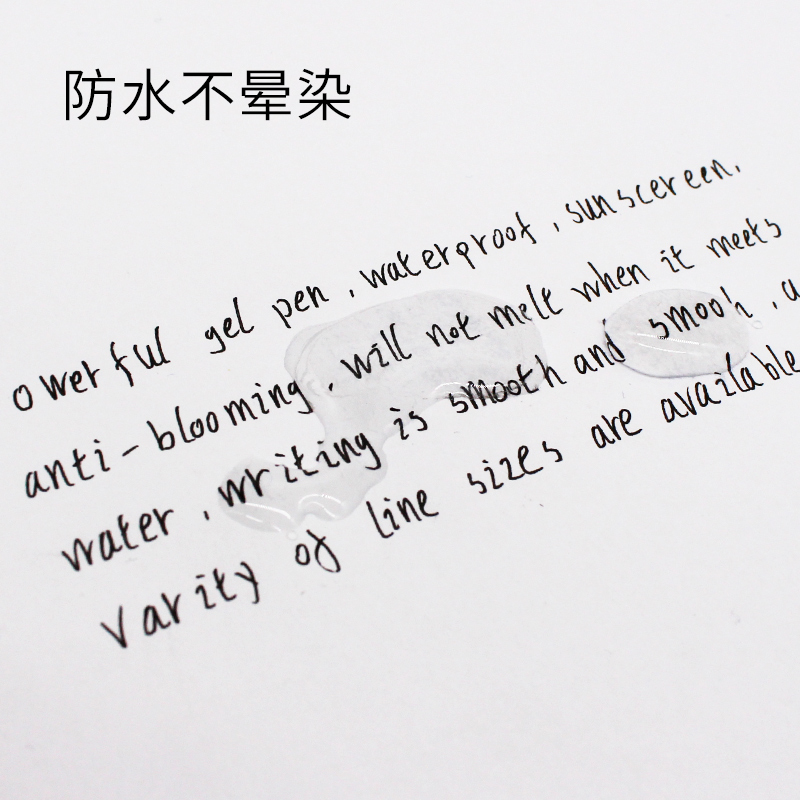 防水不晕染
owerful gel pen, waterproof, sunscereen,
anti-blooming, will not melt when it meets
water, writing is smooth and smooh, a
varity of line sizes are available